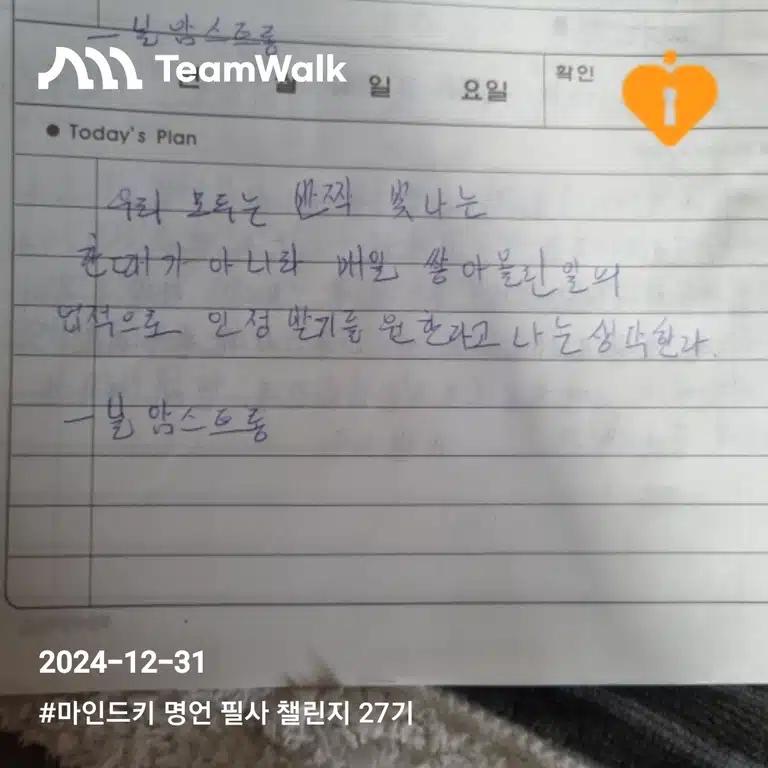 - 닐 암스트롱
TeamWalk
년 월 일 요일 확인
● Today's Plan
우리 모두는 반짝 빛나는
한때가 아니라 매일 쌓아올린 일의
업적으로 인정 받기를 원한라고 나는 생각한다.
- 닐 암스트롱
2024-12-31
#마인드키 명언 필사 챌린지 27기